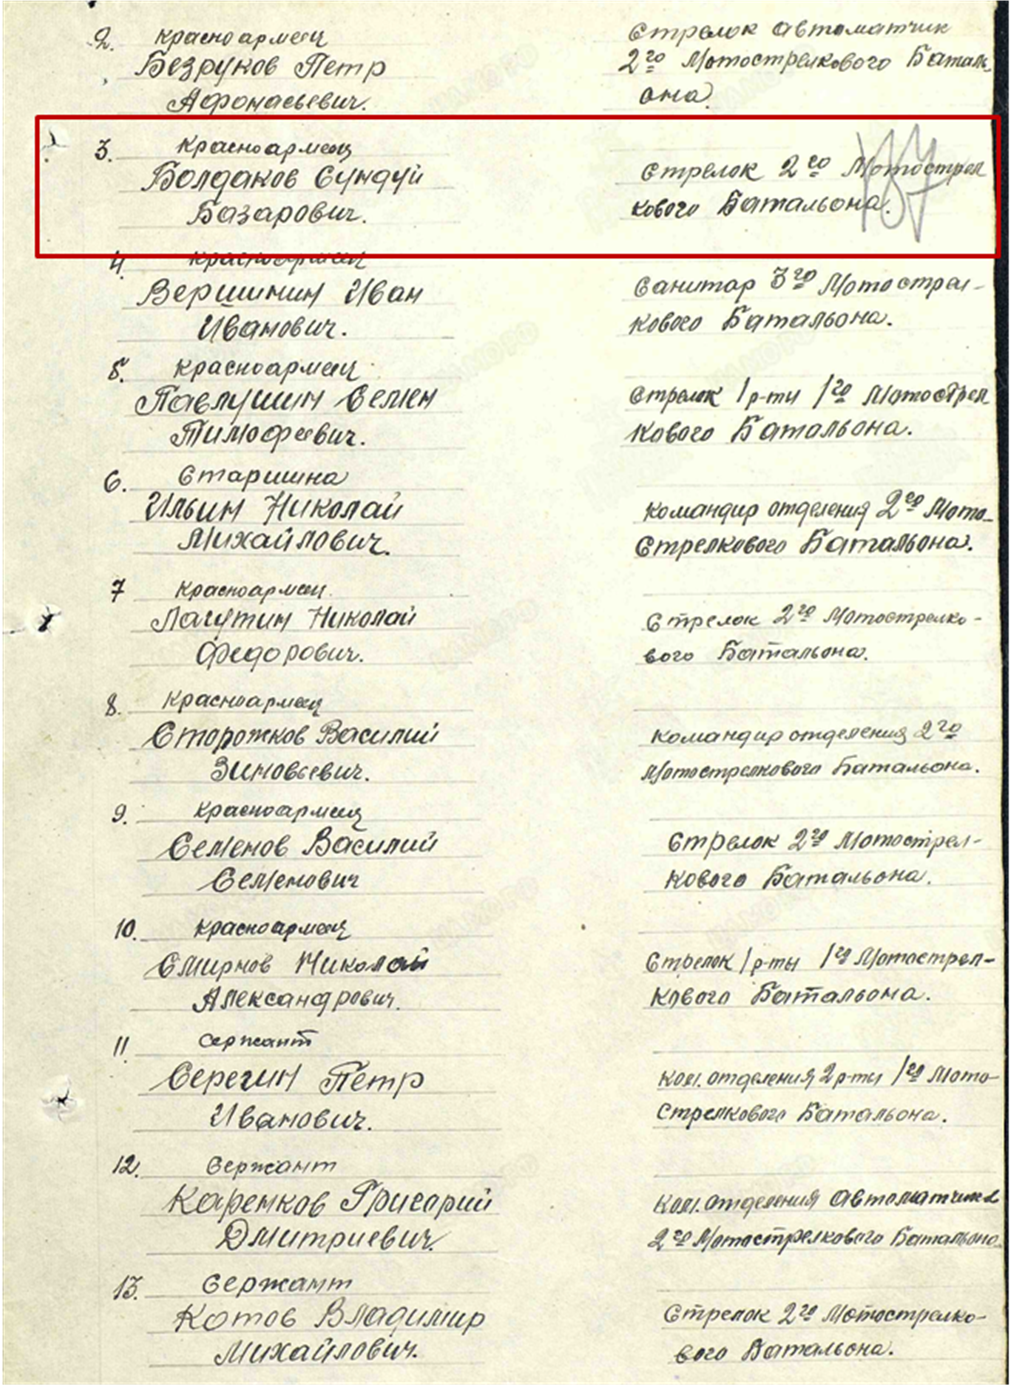 2. Красноармеец
Безруков Петр
Афонасьевич.
Стрелок автоматчик
2го Мотострелкового Баталь
она.
3. Красноармеец
Болдаков Сундуй
Базарович.
Стрелок 2го Мотострел
кового Батальона.
4. Красноармеец
Вершинин Иван
Иванович.
Санитар 3го Мотострел-
кового Батальона.
5. Красноармеец
Павлушин Семен
Тимофеевич.
Стрелок 1 р-ты 1го Мотострел
кового Батальона.
6. Старшина
Ильин Николай
Михайлович.
Командир отделения 2го Мото-
стрелкового Батальона.
7 Красноармеец
Лагутин Николай
Федорович.
Стрелок 2го Мотострелко-
вого Батальона.
8. Красноармеец
Сторожков Василий
Зиновьевич.
Командир отделения 2го
Мотострелкового Батальона.
9. Красноармеец
Семенов Василий
Семенович
Стрелок 2го Мотострел-
кового Батальона.
10. Красноармеец
Смирнов Николай
Александрович.
Стрелок 1 р-ты 1го Мотострел-
кового Батальона.
11 Сержант
Серегин Петр
Иванович.
Ком. отделения 2 р-ты 1го Мото-
стрелкового Батальона.
12. Сержант
Каренков Григорий
Дмитриевич.
Ком. отделения автоматчиков
2го Мотострелкового Батальона.
13. Сержант
Котов Владимир
Михайлович.
Стрелок 2го Мотострелко-
вого Батальона.